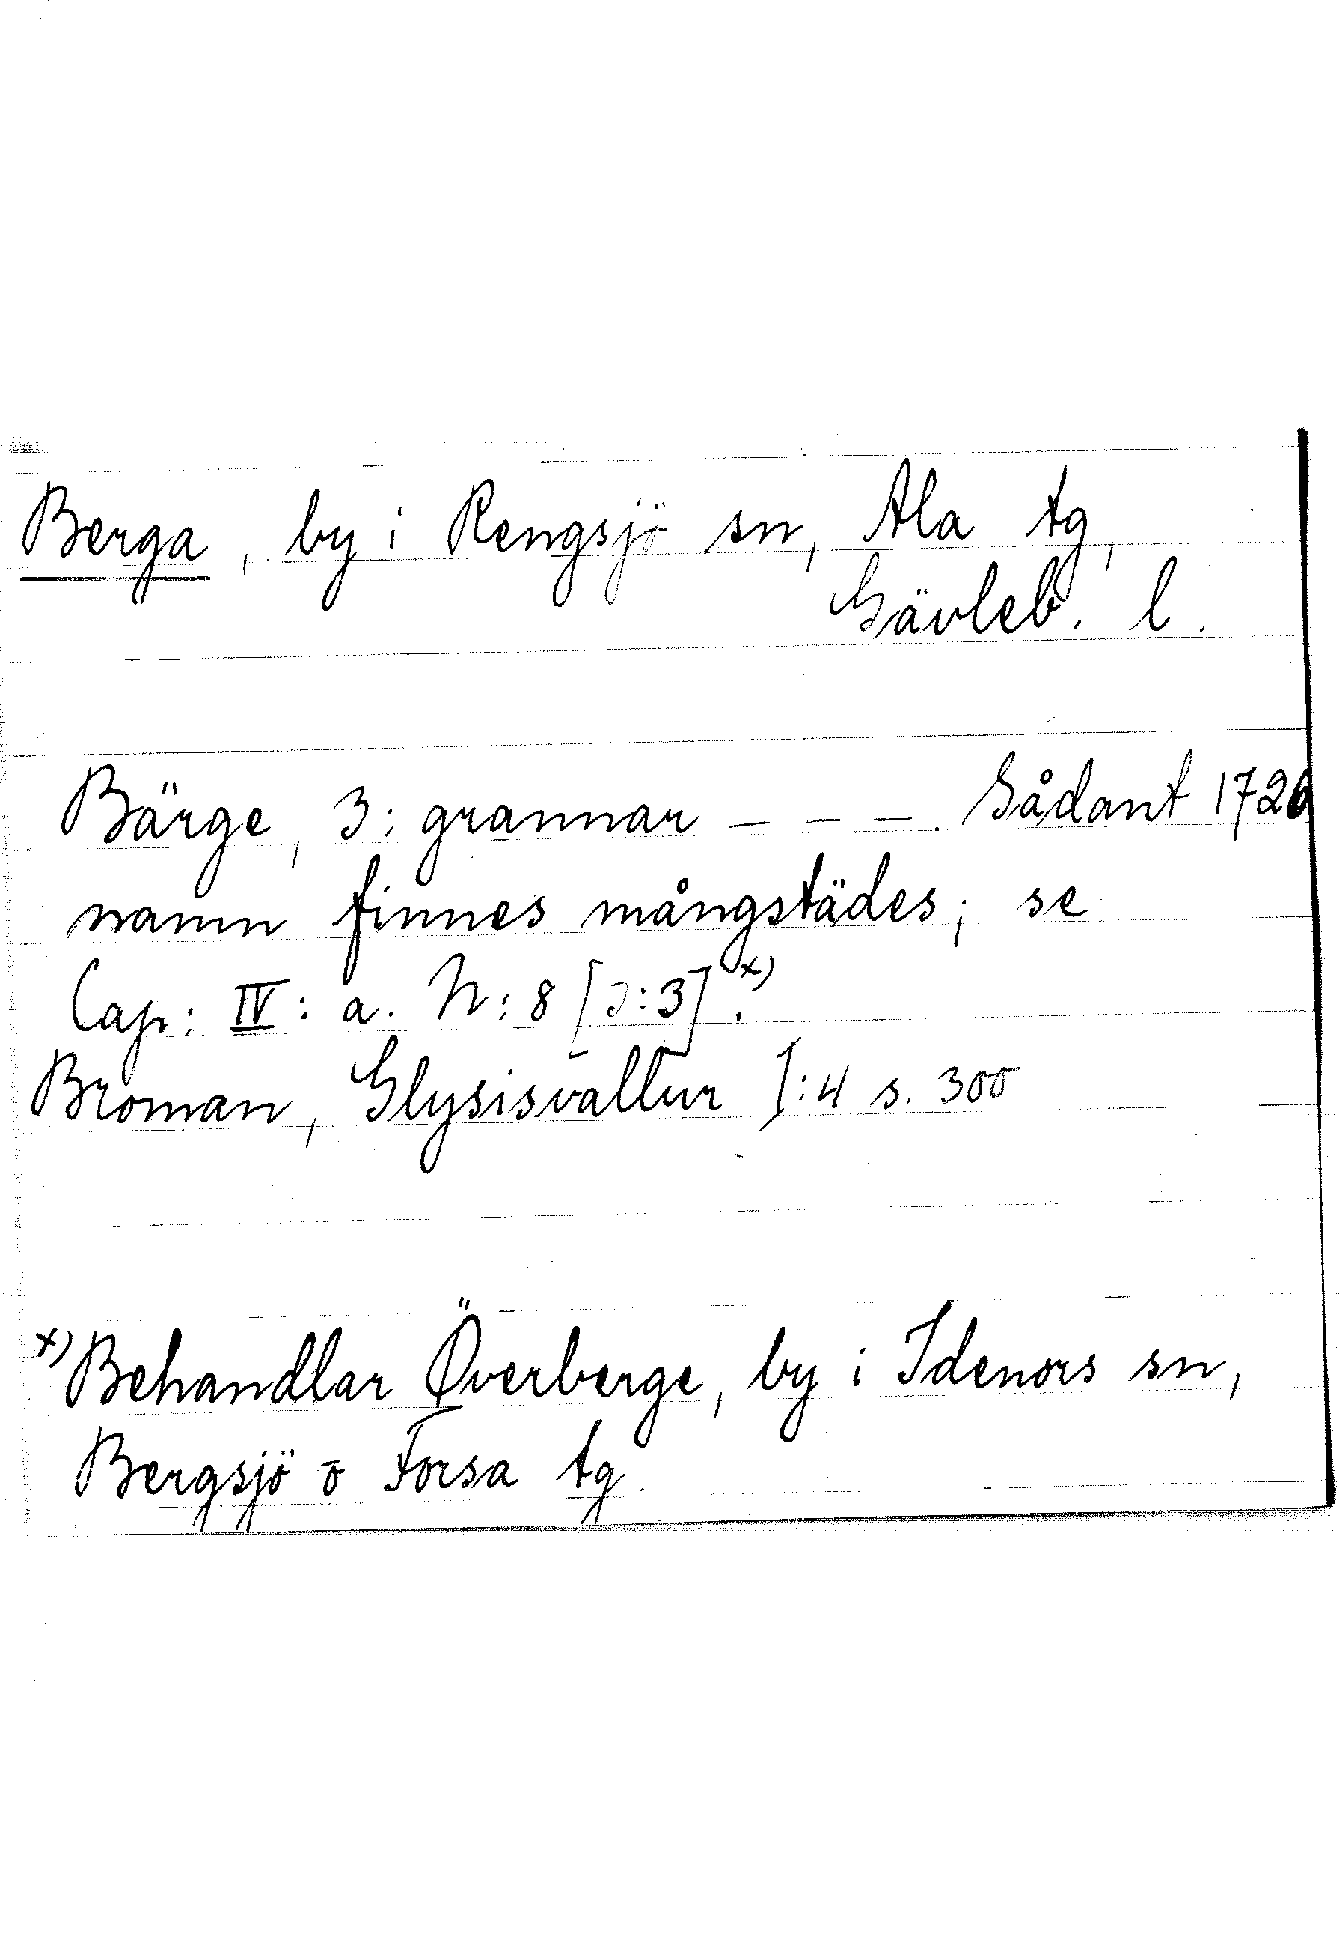 Berga, by i Rengsjö sn, Ala tg,
Gävleb. l.
Bärge, 3: grannar – – –. Sådant 1726
namn finnes mångstädes; se
Cap: IV: a. N: 8 [ɔ:3].x)
Broman, Glysisvallur I:4 s. 300
x) Behandlar Överberge, by i Idenors sn,
Bergsjö o Forsa tg